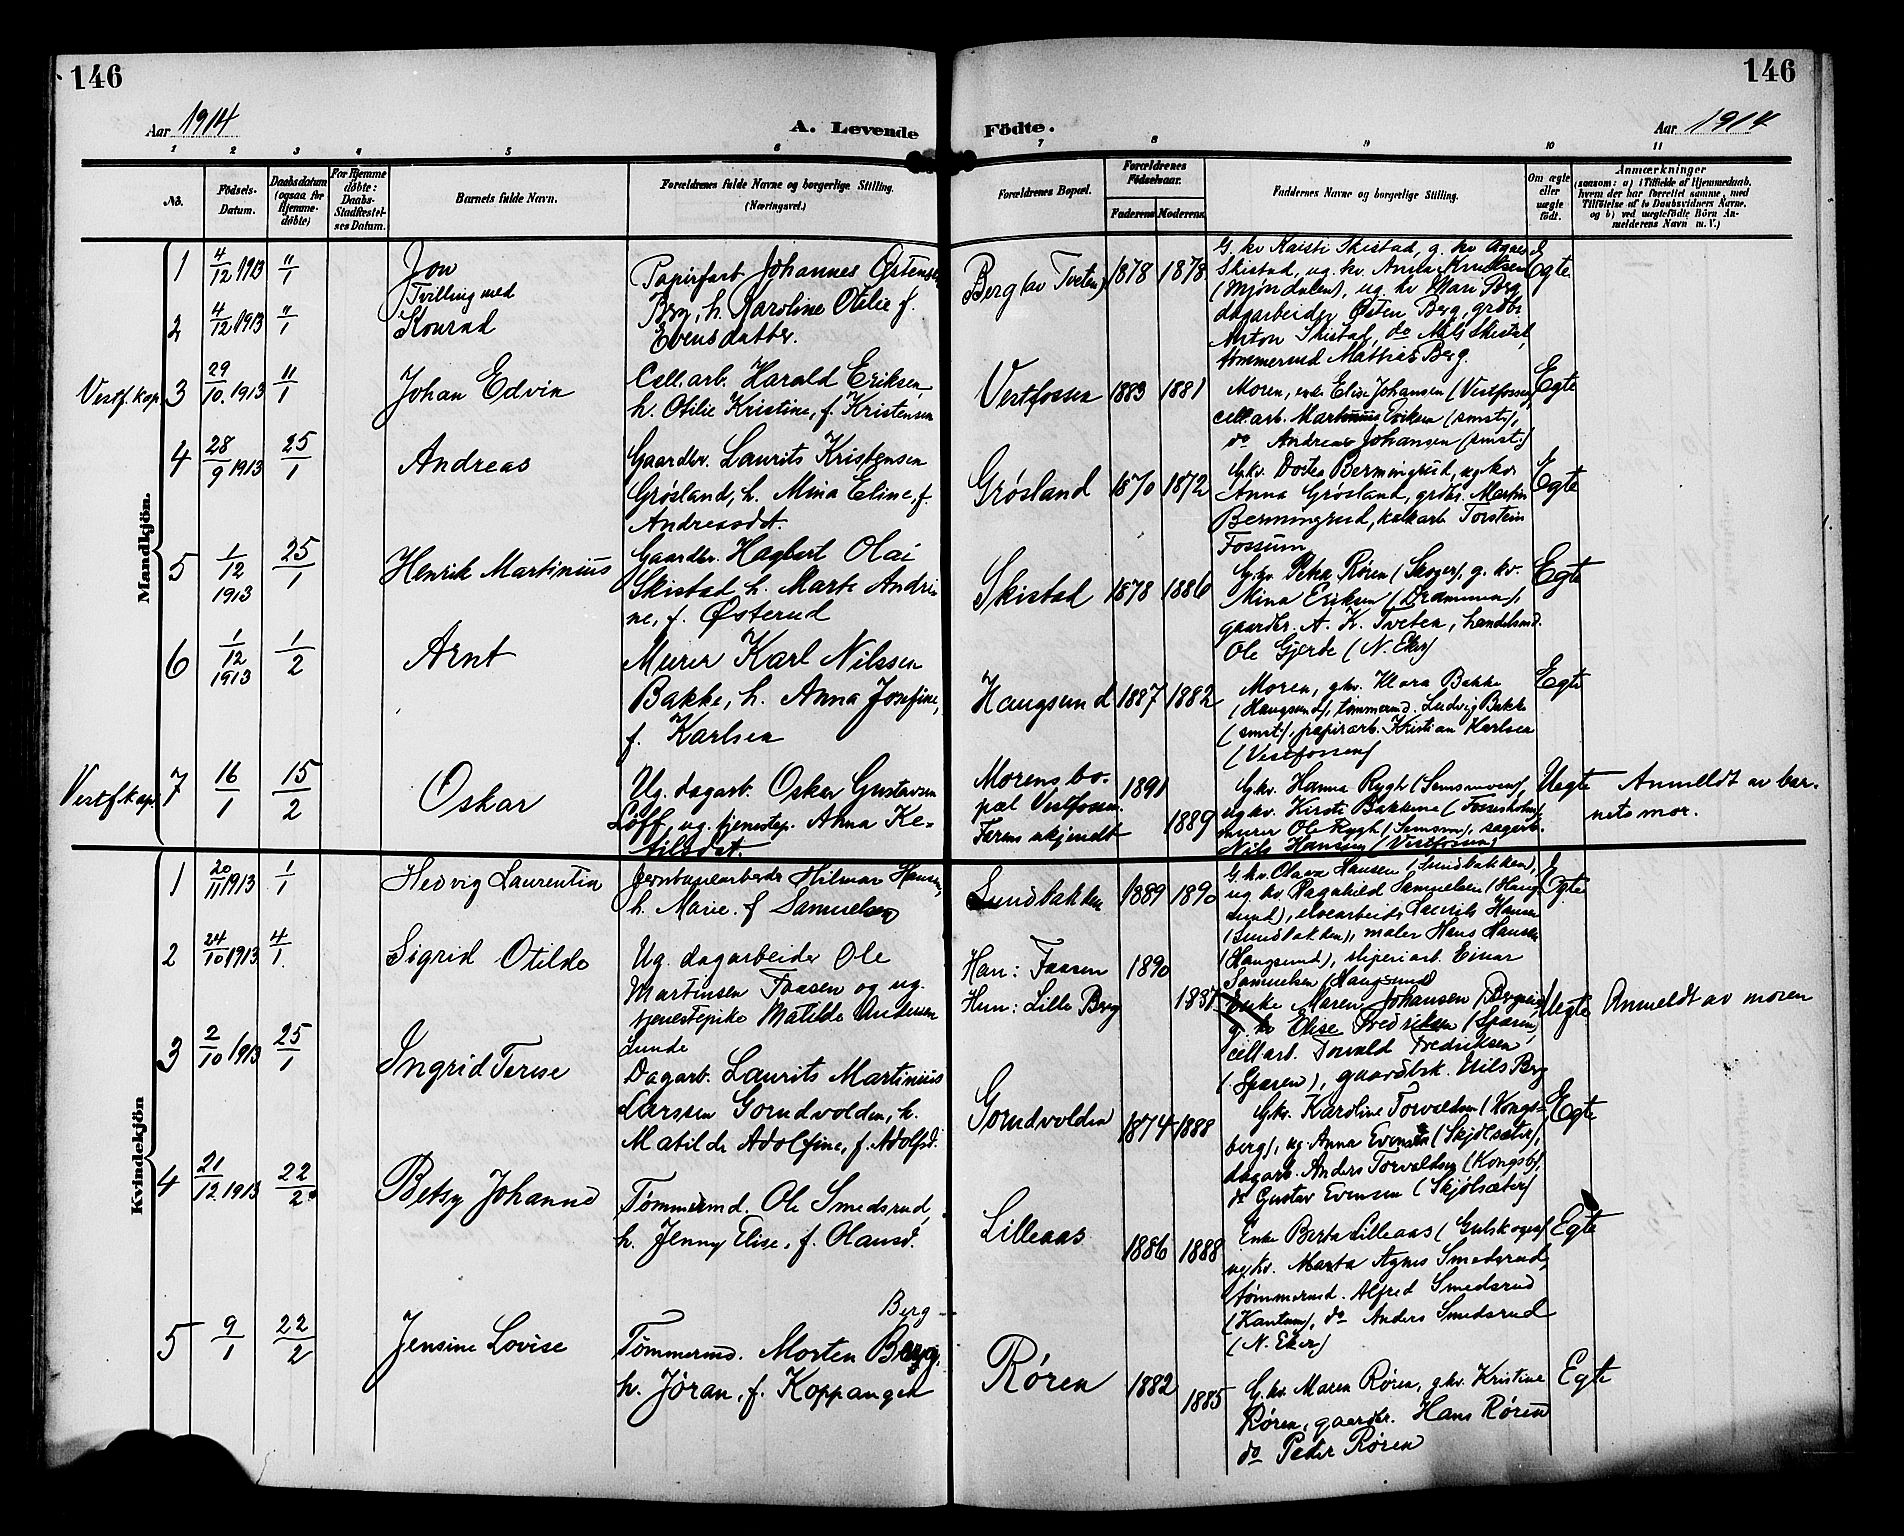 146
146
Aar 1914
A. Levende
Födte.
Aar 1914
1 2 3 4 5 6 7 8 9 10 11
No.
Födsels-Datum.
Daabsdatum (ogsaa for Hjemmedöbte)
For Hjemmedöbte: Daabs-Stadfæstelses Datum.
Barnets fulde Navn.
Forældrenes fulde Navne og borgerlige Stilling.
(Næringsvei.)
Forældrenes Bopæl.
Forældrenes Födselsaar.
Faderens Moderens
Faddernes Navne og borgerlige Stilling.
Om ægte eller uægte födt.
Anmærkninger
(saasom: a) i Tilfælde af Hjemmedaab, hvem der har forrettet samme, med Tilföielse af to Daabsvidners Navne, og b) ved uegtefödte Börn Anmelderens Navn m. V.)
Mandkjön.
1 4/12 1913 11/1 Jon
Tvilling med
2 4/12 1913 11/1 Konrad
Papirfarb Johannes Østensen
Berg, h. Karoline Otilie f.
Evensdatter.
Berg (av Tveten) 1878 1878
G. kv Kaisti Skistad, g. kv Agnes
Skistad, ug. kv. Anna Knudsen
(Mjöndalen), ug. kv Mari Berg
dagarbeider Østen Berg, grdbr
Anton Skistad, do Nils Skistad,
tømmermd Mathias Berg.
Egte
Vestf. kap. 3 29/10 1913 11/1 Johan Edvin
Cell. arb. Harald Eriksen,
h. Otilie Kristine, f. Kristensen
Vestfossen 1883 1881
Moren, enke Elise Johansen (Vestfossen),
cell. arb. Martinius Eriksen (smst.),
do Andreas Johansen (smst.)
Egte
4 28/9 1913 25/1 Andreas
Gaardbr. Laurits Kristensen
Grøsland, h. Mina Eline, f.
Andreasdt.
Grøsland 1870 1872
G. kv. Dortea Bermingrud, ug. kv
Anna Grøsland, grdbr. Martin
Bermingrud, kalkarb Torstein
Fossum
Egte
5 1/12 1913 25/1 Henrik Martinius
Gaardbr. Hagbart Olai
Skistad h. Marte Andri
ne, f. Østerud
Skistad 1878 1886
G. kv. Petra Røren (Skoger), g. kv.
Mina Eriksen (Drammen),
gaardbr. A. K. Tveten, handelsmd.
Ole Gjerde (N. Eker)
Egte
6 1/12 1913 1/2 Arnt
Murer Karl Nilssen
Bakke, h. Anna Josefine,
f. Karlsen
Haugsund 1887 1882
Moren, gkv. Klara Bakke
(Haugsund), tømmermd. Ludvig Bakke
(smst), papirarb. Kristian Karlsen
(Vestfossen)
Egte
Vestf kap 7 16/1 15/2 Oskar
Ug. dagarb. Oskar Gustavsen
Löff, ug. tjenestep. Anna Ke-
tilsdat.
Morens bo-
pæl Vestfossen.
Farens ukjendt
1891 1889
G. kv. Hanna Rygh (Semsmoen),
ug kv. Kirsti Bakkerne (Fossesholm),
murer Ole Rygh (Semsm), sagarb.
Nils Hansen (Vestfossen)
Uegte
Anmeldt av bar-
nets mor.
Kvindekjön
1 20/11 1913 1/1 Hedvig Laurentia
Jernbanearbeider Hilmar Hansen,
h. Marie. f Samuelsen
Lundbakken 1889 1890
G. kv. Olava Hansen (Lundbakken),
ug kv. Ragnhild Samuelsen (Haug
sund), elvearbeider Laurits Hansen
(Lundbakken), maler Hans Hansen
(Haugsund), sliperiarb. Einar
Samuelsen (Haugsund)
Egte
2 24/10 1913 4/1. Sigrid Otilde
Ug. dagarbeider Ole
Martinsen Faasen og ug.
tjenestepike Matilde Andersen
Lunde
Han: Faasen 1890
Hun: Lille Berg 1887
Enke Maren Johansen (Bergsvig)
g. kv Elise Fredriksen (Sparen),
cell arb. Torvald Fredriksen
(Sparen), gaardbr. Nils Berg
Uegte
Anmeldt av moren
3 2/10 1913 25/1 Ingrid Terese
Dagarb. Laurits Martinius
Larssen Gorudvolden, h.
Matilde Adolfine, f. Adolfsd.
Gorudvolden 1874 1888
G. kv. Karoline Torvaldsen (Kongs-
berg), ug Anna Evensen (Skjølsæter),
dagarb. Anders Torvaldsen (Kongsb),
do Gustav Evensen (Skjølsæter)
Egte
4 21/12 1913 22/2. Betsy Johanne
Tømmermd. Ole Smedsrud,
h. Jenny Elise, f. Olausd.
Lilleaas 1886 1888
Enke Berta Lilleaas (Gulskogen)
ug. kv. Marta Agnes Smedsrud,
tømmermd. Alfred Smedsrud
(Kantum), do Anders Smedsrud
(N. Eker)
Egte
5 9/1 22/2 Jensine Lovise
Berg
Tømmermd. Morten Berg.
h. Jøran, f. Koppangen
Røren 1882 1885
G. kv. Maren Røren, gkv. Kristine
Røren, gaardbr. Hans Røren
do Peder Røren
Egte